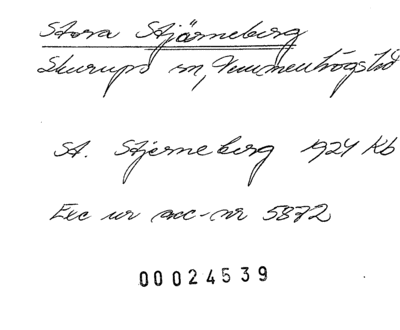 Stora Stjärneborg
Skurups sn, Vemmenhögs hd
St. Stjerneborg 1924 Kb
Exc ur acc-nr 5872
00024539